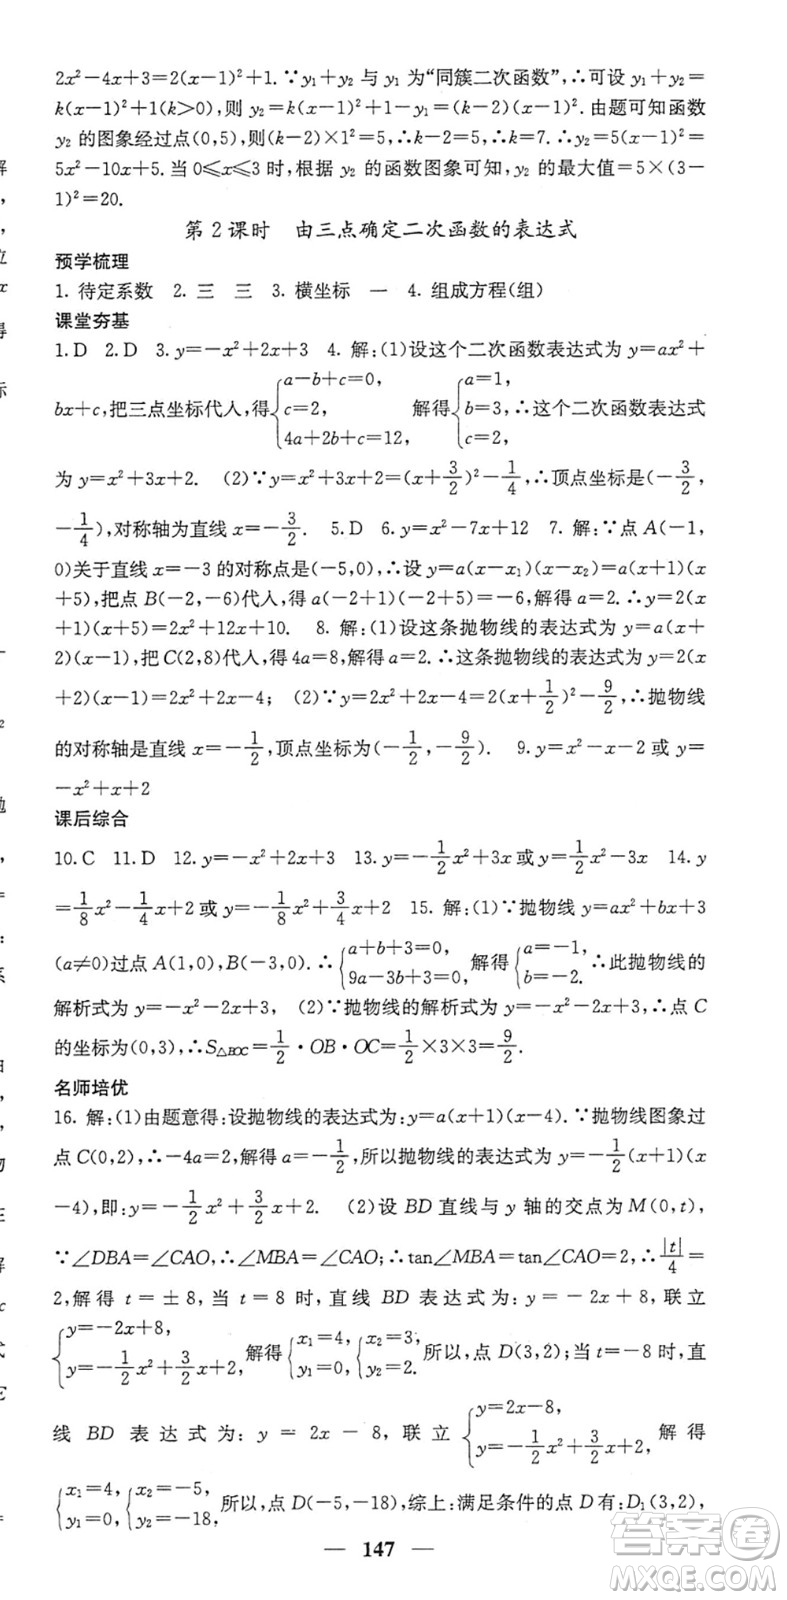 2x²-4x+3=2(x-1)²+1.∵y₁+y₂ 与 y₁ 为“同簇二次函数”,∴可设 y₁+y₂=
k(x-1)²+1(k>0),则 y₂=k(x-1)²+1-y₁=(k-2)(x-1)². 由题可知函数
y₂ 的图象经过点(0,5),则(k-2)×1²=5,∴k-2=5,∴k=7.∴y₂=5(x-1)²=
5x²-10x+5.当 0≤x≤3 时,根据 y₂ 的函数图象可知,y₂ 的最大值=5×(3-
1)²=20.
第 2 课时 由三点确定二次函数的表达式
预学梳理
1. 待定系数 2. 三 三 3. 横坐标 一 4. 组成方程(组)
课堂夯基
1.D 2.D 3.y=-x²+2x+3 4. 解:(1)设这个二次函数表达式为 y=ax²+
bx+c,把三点坐标代人,得{a-b+c=0, c=2, 4a+2b+c=12, 解得{a=1, b=3, c=2, ∴这个二次函数表达式
为 y=x²+3x+2. (2)∵y=x²+3x+2=(x+3/2)²-1/4,∴顶点坐标是(-3/2,
-1/4),对称轴为直线 x=-3/2. 5.D 6.y=x²-7x+12 7. 解:∵点 A(-1,
0)关于直线 x=-3 的对称点是(-5,0),∴设 y=a(x-x₁)(x-x₂)=a(x+1)(x
+5),把点 B(-2,-6)代人,得 a(-2+1)(-2+5)=-6,解得 a=2.∴y=2(x
+1)(x+5)=2x²+12x+10. 8. 解:(1)设这条抛物线的表达式为 y=a(x+
2)(x-1),把 C(2,8)代人,得 4a=8,解得 a=2.∴这条抛物线的表达式为 y=2(x
+2)(x-1)=2x²+2x-4; (2)∵y=2x²+2x-4=2(x+1/2)²-9/2,∴抛物线
的对称轴是直线 x=-1/2,顶点坐标为(-1/2,-9/2). 9.y=x²-x-2 或 y=
-x²+x+2
课后综合
10.C 11.D 12.y=-x²+2x+3 13.y=-1/2x²+3x 或 y=1/2x²-3x 14.y
=1/8x²-1/4x+2 或 y=-1/8x²+3/4x+2 15. 解:(1)∵抛物线 y=ax²+bx+3
(a≠0)过点 A(1,0),B(-3,0).∴{a+b+3=0, 9a-3b+3=0, 解得{a=-1, b=-2. ∴此抛物线的
解析式为 y=-x²-2x+3, (2)∵抛物线的解析式为 y=-x²-2x+3,∴点 C
的坐标为(0,3),∴S△BOC=1/2·OB·OC=1/2×3×3=9/2.
名师培优
16. 解:(1)由题意得:设抛物线的表达式为:y=a(x+1)(x-4).∵抛物线图象过
点 C(0,2),∴-4a=2,解得 a=-1/2,所以抛物线的表达式为:y=-1/2(x+1)(x
-4),即:y=-1/2x²+3/2x+2. (2)设 BD 直线与 y 轴的交点为 M(0,t),
∵∠DBA=∠CAO,∴∠MBA=∠CAO,∴tan∠MBA=tan∠CAO=2,∴|t|/4=
2,解得 t=±8,当 t=8 时,直线 BD 表达式为:y=-2x+8,联立
{y=-2x+8, y=-1/2x²+3/2x+2, 解得{x₁=4, y₁=0, {x₂=3, y₂=2, 所以,点 D(3,2);当 t=-8 时,直
线 BD 表达式为:y=2x-8,联立{y=2x-8, y=-1/2x²+3/2x+2, 解得
{x₁=4, y₁=0, {x₂=-5, y₂=-18, 所以,点 D(-5,-18),综上:满足条件的点 D 有:D₁(3,2),
— 147 —
答案卷
MXQE.COM